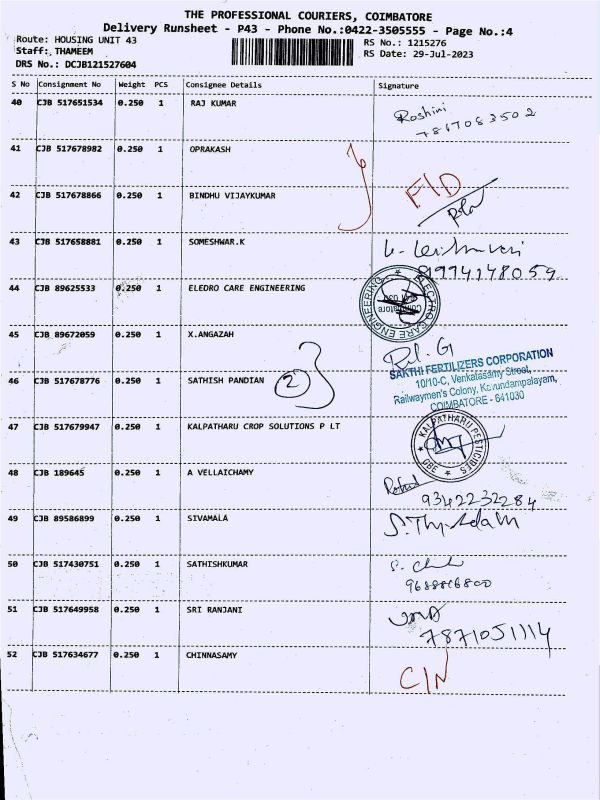 THE PROFESSIONAL COURIERS, COIMBATORE
Delivery Runsheet - P43 - Phone No.:0422-3505555 - Page No.:4
Route: HOUSING UNIT 43
RS No.: 1215276
Staff: THAMEEM
RS Date: 29-Jul-2023
DRS No.: DCJB121527604
S No Consignment No Weight PCS Consignee Details Signature
40 CJB 517651534 0.250 1 RAJ KUMAR Roshini
7867083502
41 CJB 517678982 0.250 1 OPRAKASH
42 CJB 517678866 0.250 1 BINDHU VIJAYKUMAR F/D
43 CJB 517658881 0.250 1 SOMESHWAR.K
9974148059
44 CJB 89625533 0.250 1 ELEDRO CARE ENGINEERING
ELECTRO CARE ENGINEERING
Coimbatore
45 CJB 89672059 0.250 1 X.ANGAZAH
SAKTHI FERTILIZERS CORPORATION
46 CJB 517678776 0.250 1 SATHISH PANDIAN 2
10/10-C, Venkatasamy Street,
Railwaymen's Colony, Kavundampalayam,
COIMBATORE - 641030
47 CJB 517679947 0.250 1 KALPATHARU CROP SOLUTIONS P LT
KALPATHARU PESTICIDES
CBE
48 CJB 189645 0.250 1 A VELLAICHAMY
9342232284
49 CJB 89586899 0.250 1 SIVAMALA
50 CJB 517430751 0.250 1 SATHISHKUMAR
9688816800
51 CJB 517649958 0.250 1 SRI RANJANI
7871051114
52 CJB 517634677 0.250 1 CHINNASAMY C/N